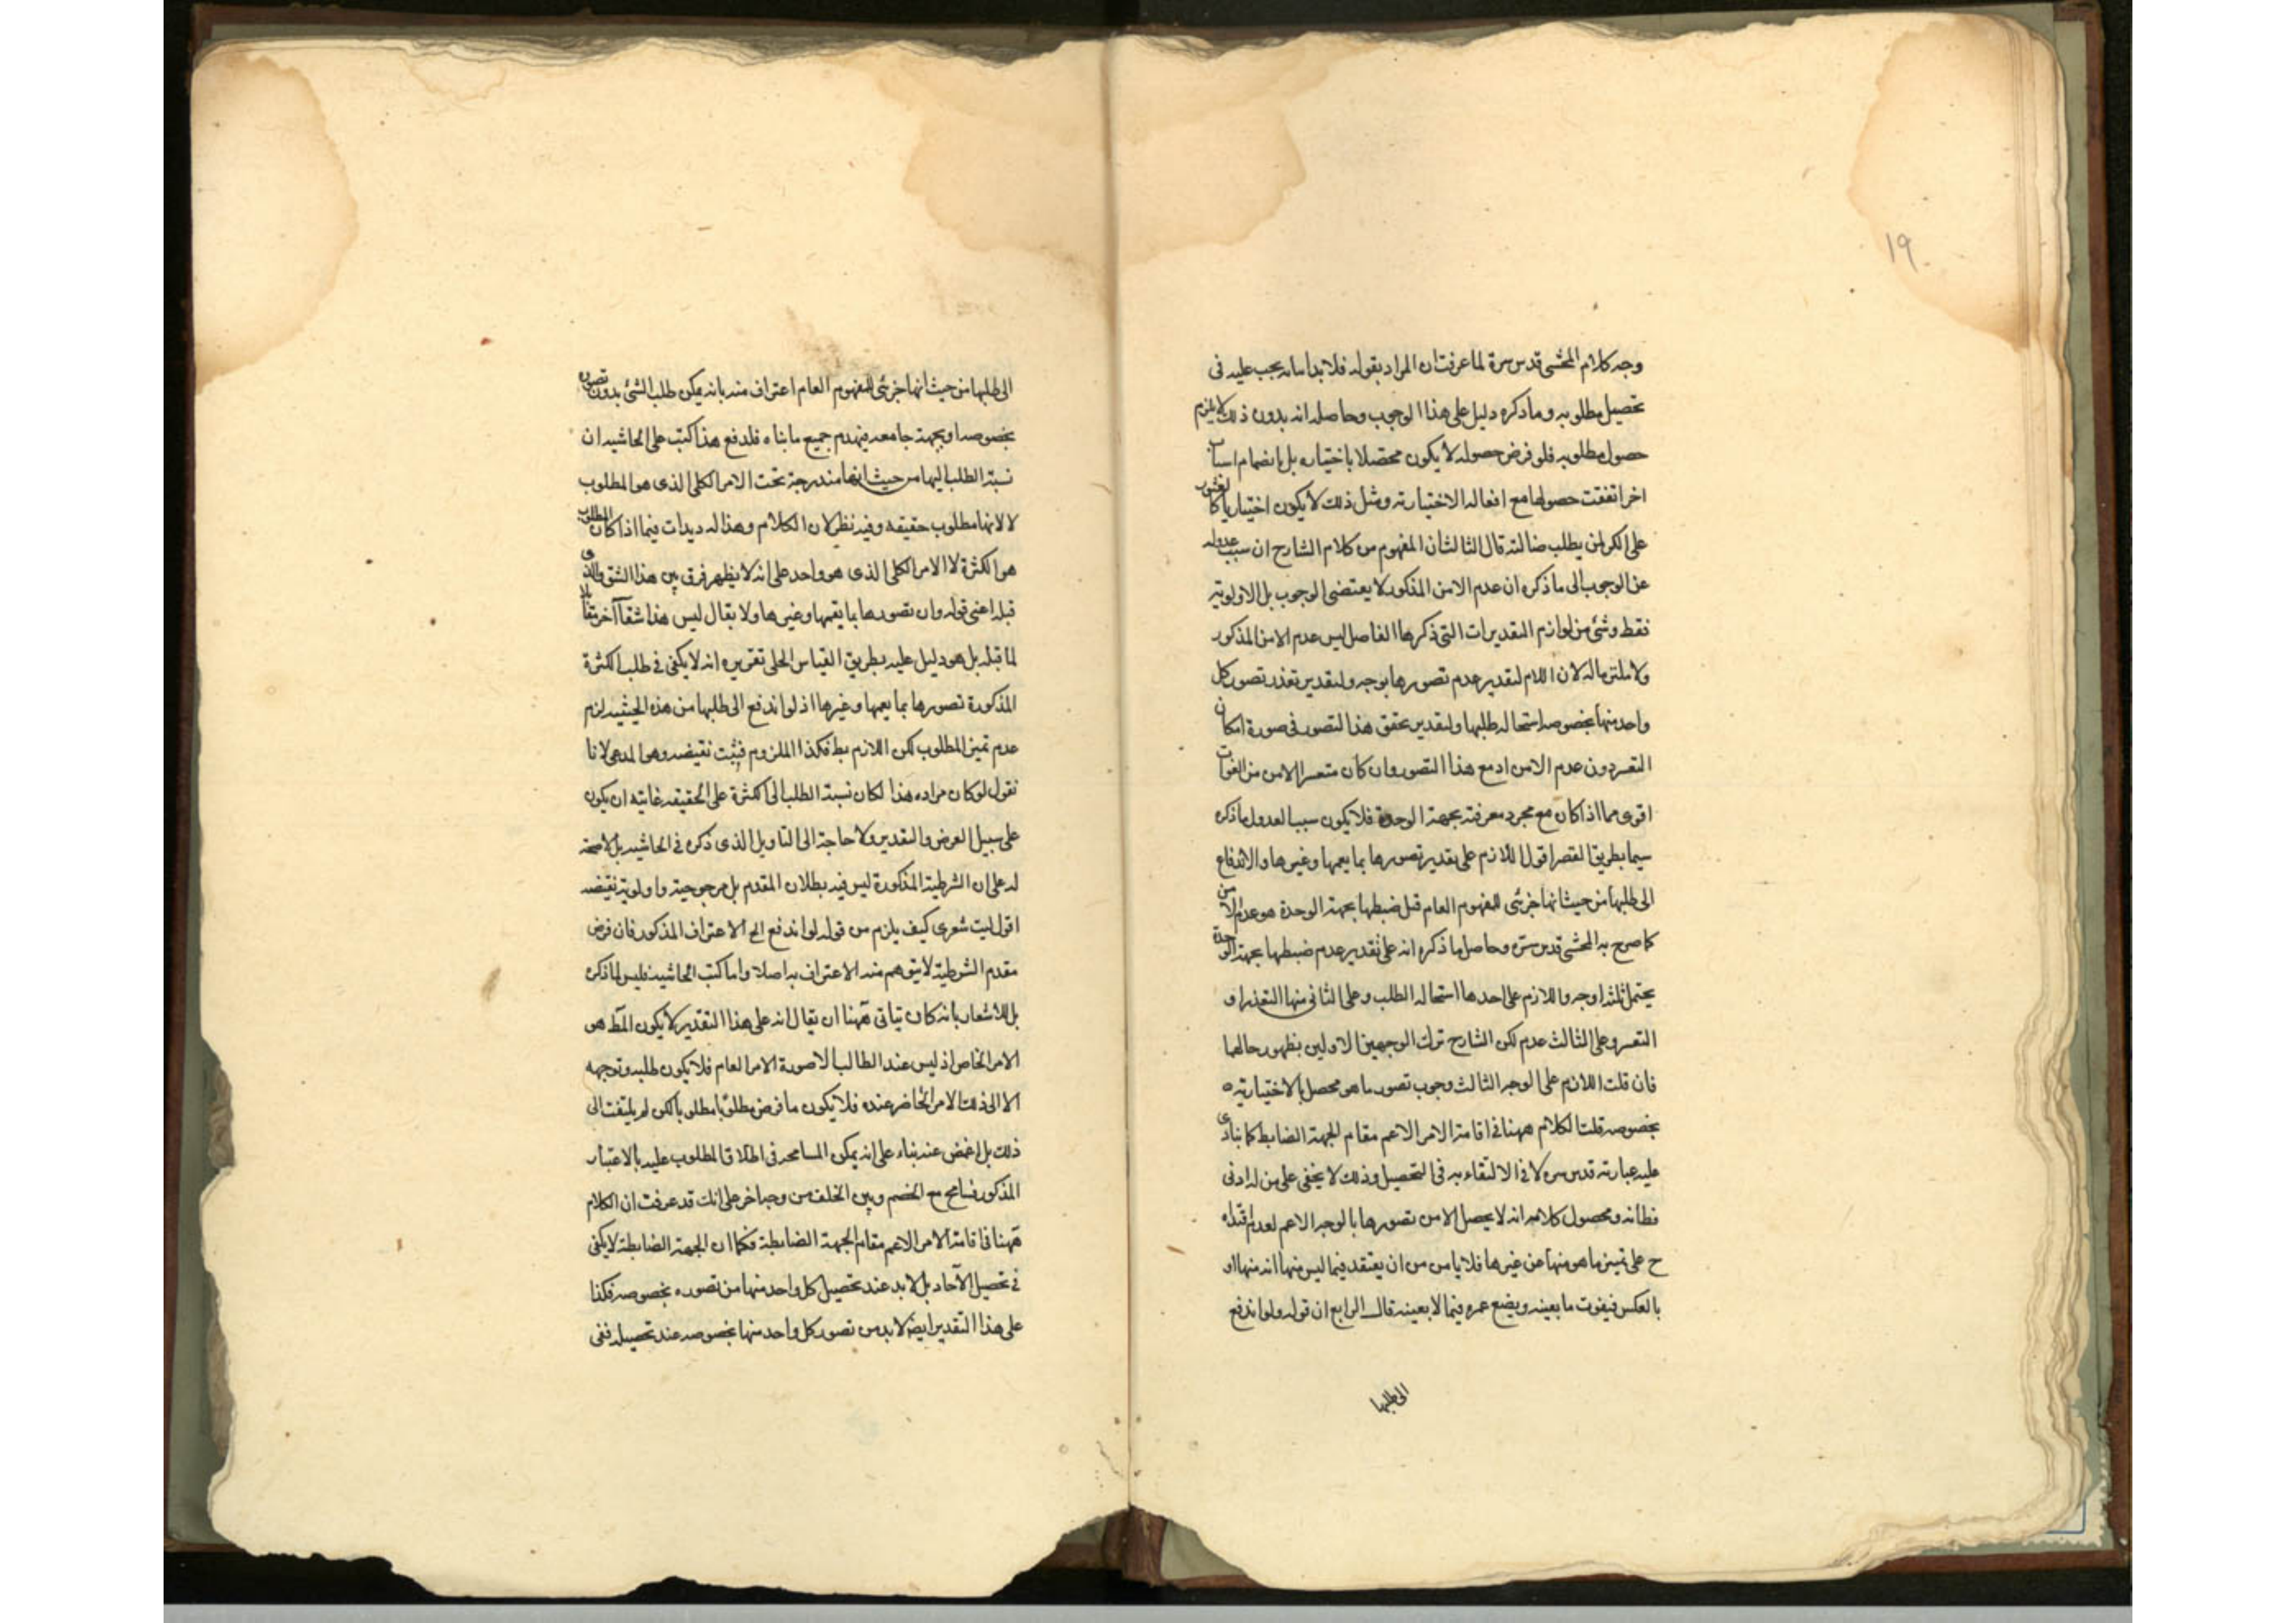 ١٩
وجه كلام المحشى قدس سره لما عرفت ان المراد بقوله فلا بد اما انه يجب عليه فى
تحصيل مطلوبه وما ذكره دليل على هذا الوجوب وحاصله انه بدون ذلك لا يلزم
حصول مطلوبه فلو فرض حصوله لا يكون محصلا باختياره بل بانضمام اسباب
اخر اتفقت حصولها مع افعاله الاختيارية ومثل ذلك لا يكون اختياريا كالعثور
على الكنز لمن يطلب ضالته قال الثالث ان المفهوم من كلام الشارح ان سبب عدوله
عن الوجوب الى ما ذكره ان عدم الامن المذكور لا يقتضى الوجوب بل الاولوية
فقط وشئ من لوازم التقديرات التى ذكرها الفاضل ليس عدم الامن المذكور
ولا ملتزما له لان اللازم لتقدير عدم تصورها بوجه ولتقدير تعذر تصور كل
واحد منها بخصوصه استحالة طلبها ولتقدير تحقق هذا التصور فى صورة امكان
التعسر دون عدم الامن اذ مع هذا التصور وان كان متعسرا الامن من الفوات
اقوى مما اذا كان مع مجرد معرفته بجهة الوحدة فلا يكون سببا لعدول ما ذكره
سيما بطريق القصر اقول اللازم على تقدير تصورها بما يعمها وغيرها والاندفاع
الى طلبها من حيث انها جزئى للمفهوم العام قبل ضبطها بجهة الوحدة هو عدم الامن
كما صرح به المحشى قدس سره وحاصل ما ذكره انه على تقدير عدم ضبطها بجهة الوحدة
يحتمل ثلثة اوجه واللازم على احدها استحالة الطلب وعلى الثانى منها التعذر او
التعسر وعلى الثالث عدم لكن الشارح ترك الوجهين الاولين بظهور حالهما
فان قلت اللازم على الوجه الثالث وجوب تصور ما هو محصل بالاختيارية
بخصوصه قلت الكلام ههنا فى اقامة الامر الاعم مقام الجهة الضابطة كما ينادى
عليه عبارته قدس سره لا فى الالتقاء به فى التحصيل وذلك لا يخفى على من له ادنى
فطانة ومحصول كلامه انه لا يحصل الامن بتصورها بالوجه الاعم لعدم اقتداره
ح على تميز ما هو منها عن غيرها فلا يأمن من ان يعتقد فيما ليس منها انه منها او
بالعكس فيفوت ما يعينه ويضيع عمره فيما لا يعينه قال الرابع ان قوله ولو اندفع
الى طلبها
الى طلبها من حيث انها جزئى للمفهوم العام اعتراف منه بانه يمكن طلب الشئ بدون تصوره
بخصوصه او بجهة جامعة فينهدم جميع ما بناه فلدفع هذا كتب على الحاشية ان
نسبة الطلب اليها من حيث انها مندرجة تحت الامر الكلى الذى هو المطلوب
لا لانها مطلوب حقيقة وفيه نظر لان الكلام وهذا له ديدات فيما اذا كان المطلوب
هو الكثرة لا الامر الكلى الذى هو واحد على انه لا يظهر فرق بين هذا الشق والذى
قبله اعنى قوله وان تصورها بما يعمها وغيرها ولا يقال ليس هذا شقا آخر مقابلا
لما قبله بل هو دليل عليه بطريق القياس الخلفى تقريره انه لا يكفى فى طلب الكثرة
المذكورة تصورها بما يعمها وغيرها اذ لو اندفع الى طلبها من هذه الحيثية لزم
عدم تميز المطلوب لكن اللازم بط فكذا الملزوم فثبت نقيضه وهو المدعى لانا
نقول لو كان مراده هذا لكان نسبة الطلب الى الكثرة على الحقيقة غايته ان يكون
على سبيل الفرض والتقدير ولا حاجة الى التاويل الذى ذكره فى الحاشية بل لا صحة
له على ان الشرطية المذكورة ليس فيه بطلان المقدم بل مرجوحيته واولوية نقيضه
اقول ليت شعرى كيف يلزم من قوله لو اندفع الخ الاعتراف المذكور فان فرض
مقدم الشرطية لا يتوهم منه الاعتراف به اصلا واما كتب الحاشية فليس لما ذكره
بل للاشعار بانه كان يتاتى ههنا ان يقال انه على هذا التقدير لا يكون المط هو
الامر الخاص اذ ليس عند الطالب الا صورة الامر العام فلا يكون طلبه وتوجهه
الا الى ذلك الامر الحاضر عنده فلا يكون ما فرض مطلوبا مطلوبا لكن لم يلتفت الى
ذلك بل اغمض عنه بناء على انه يمكن المسامحة فى اطلاق المطلوب عليه بالاعتبار
المذكور فسامح مع الخصم وبين الخلف من وجه اخر على انك قد عرفت ان الكلام
ههنا فى اقامة الامر الاعم مقام الجهة الضابطة فكما ان الجهة الضابطة لا يكفى
فى تحصيل الآحاد بل لا بد عند تحصيل كل واحد منها من تصوره بخصوصه فكذا
على هذا التقدير ايضا لا بد من تصور كل واحد منها بخصوصه عند تحصيله ففى